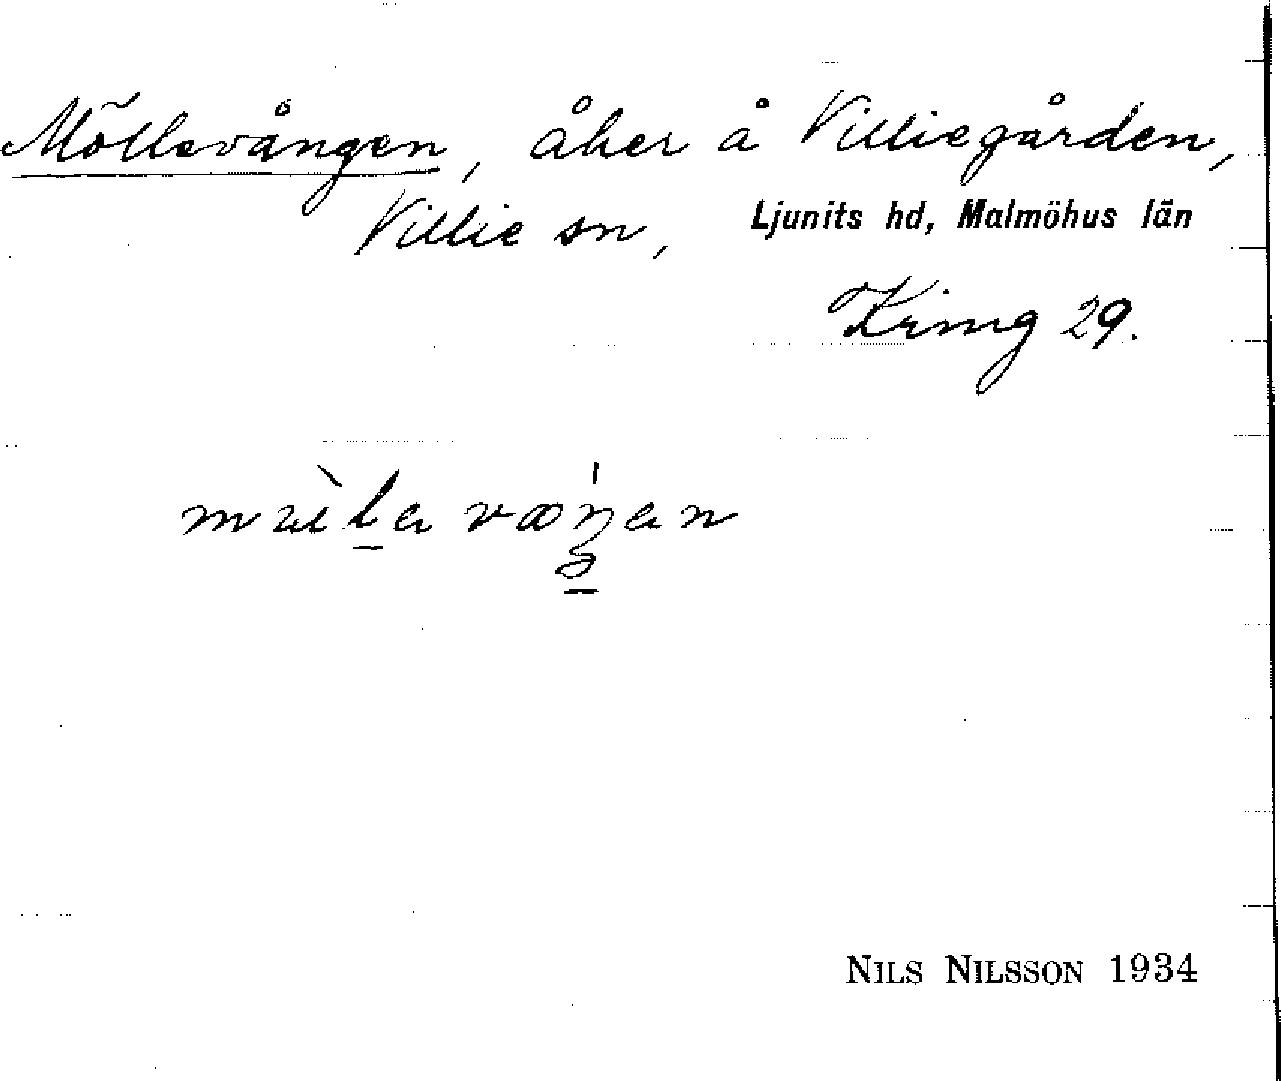 Möllevången, åker å Villiegården,
Villie sn, Ljunits hd, Malmöhus län
Kring 29.
NILS NILSSON 1934